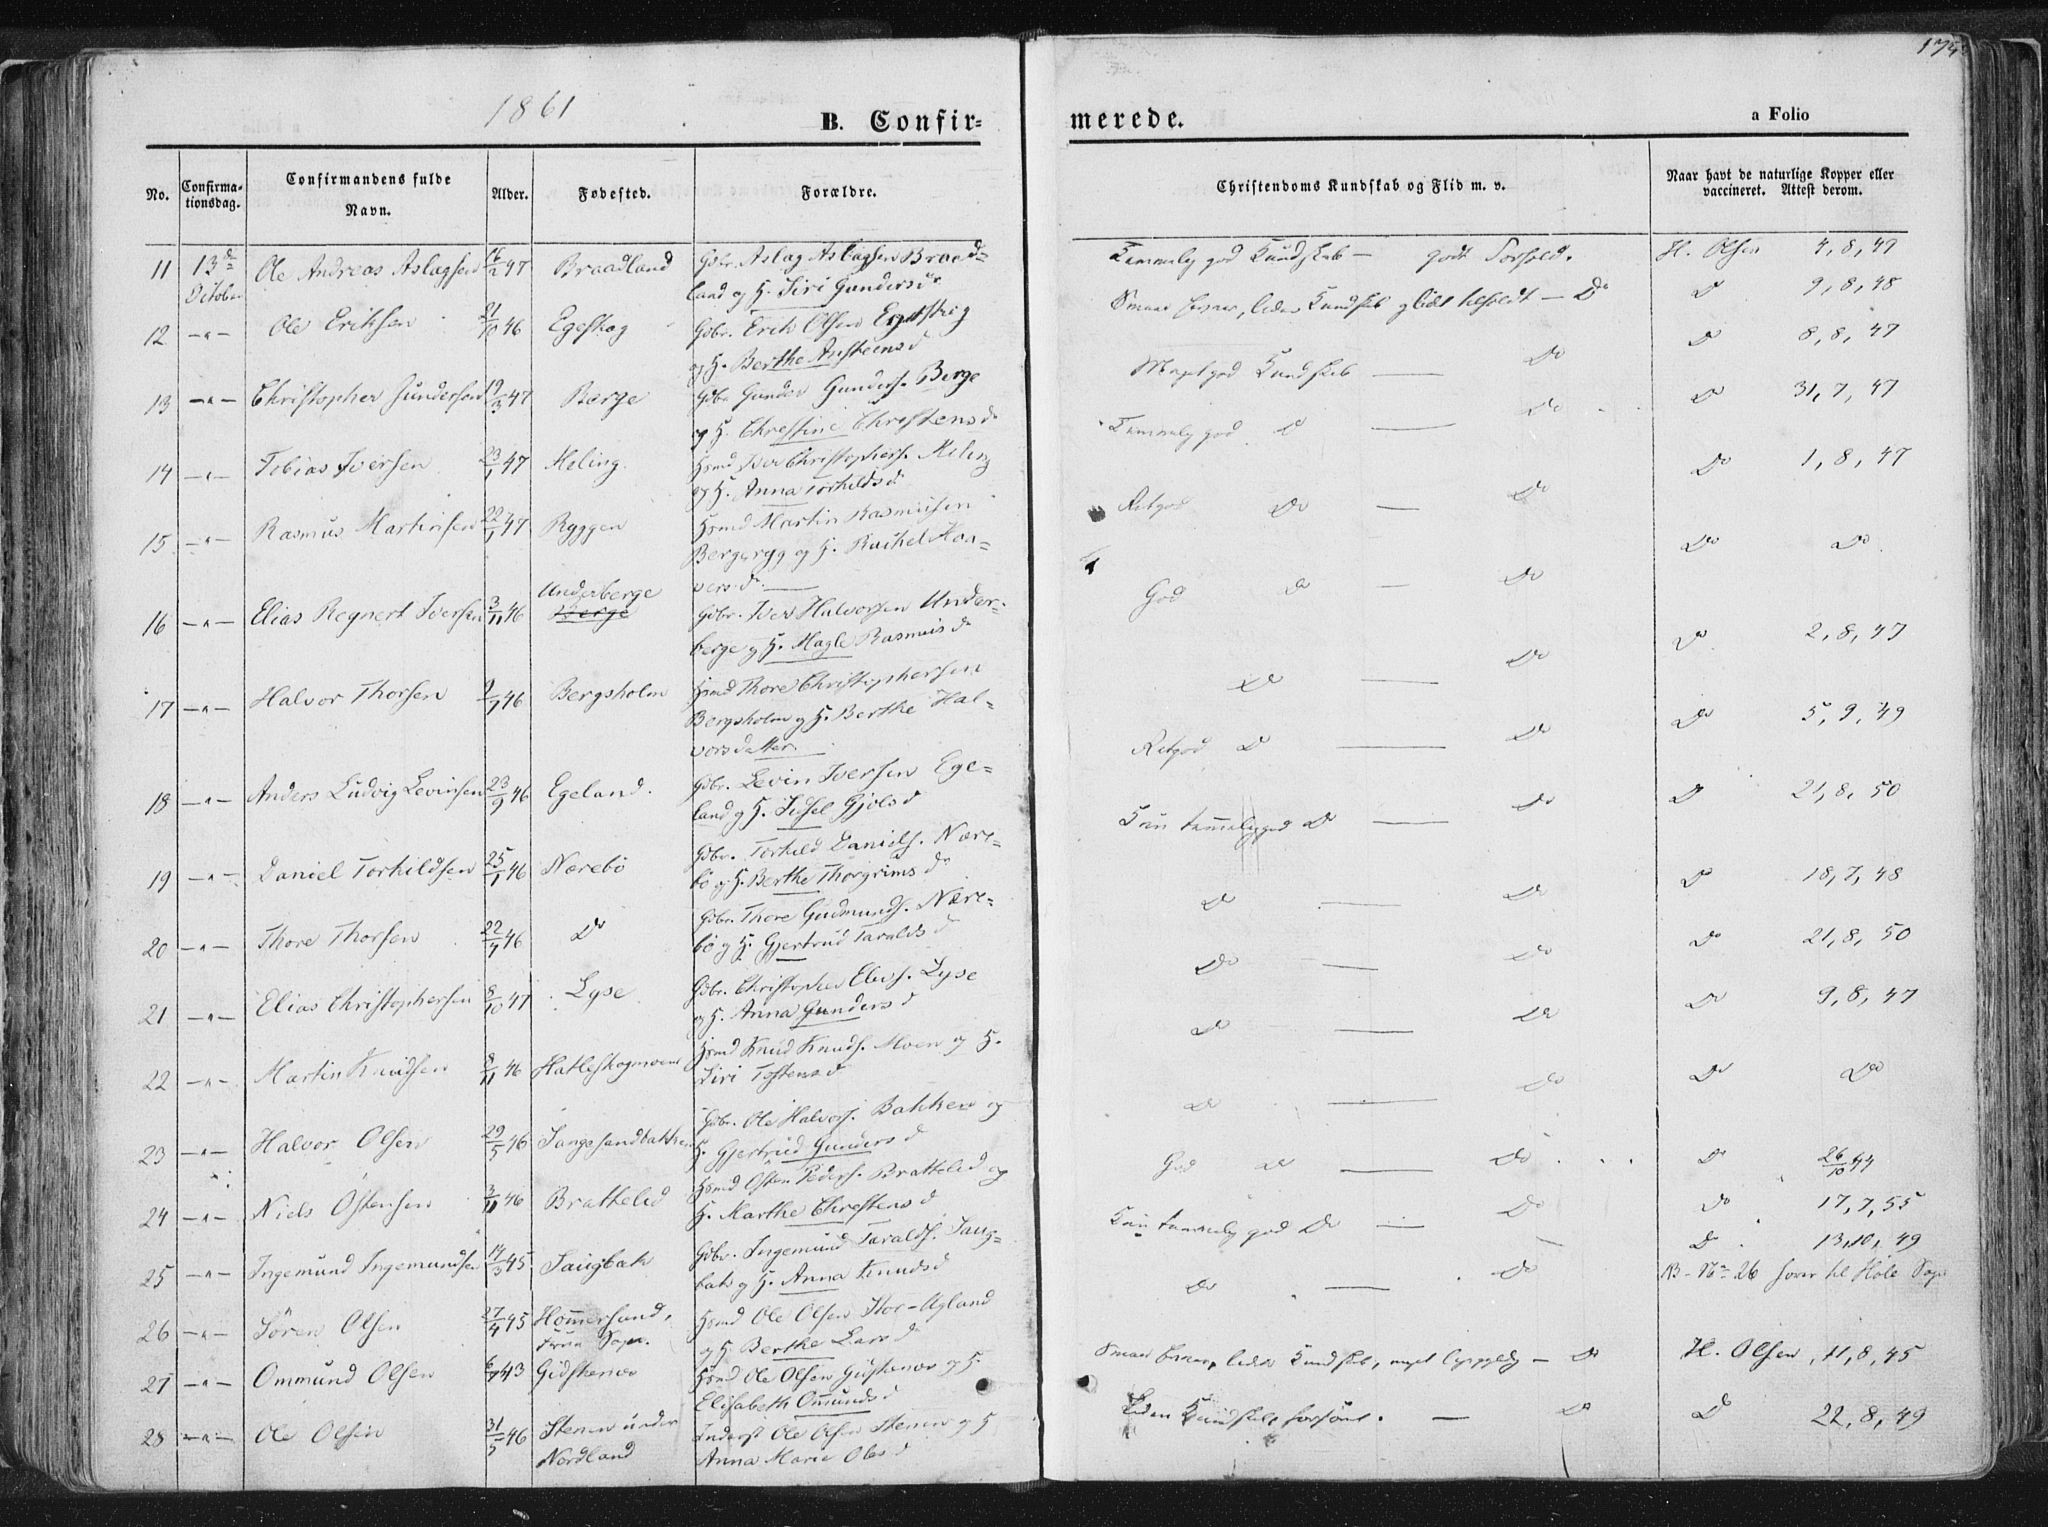 175
1861
B. Confir-
merede.
a Folio
No.
Confirma-
tionsdag.
Confirmandens fulde
Navn.
Alder.
Fødested.
Forældre.
Christendoms Kundskab og Flid m. v.
Naar havt de naturlige Kopper eller
vaccineret. Attest derom.
11 13de October Ole Andreas Aslagsen 16/2 47 Braadland Gdbr. Aslag Aslagsen Braad-
land og H. Siri Gundersdr
Temmelig god Kundskab — godt Forhold. H. Olsen 4, 8, 49
12 —"— Ole Eriksen 21/10 46 Egeskog Gdbr. Erik Olsen Egeskog
og H. Berthe Austeensd
Smaa Evner, liden Kundskab — Do Do 9, 8, 48
13 —"— Christopher Gundersen 19/3 47 Berge Gdbr. Gunder Gunders. Berge
og H. Christine Christensd
Meget god Kundskab — Do Do 8, 8, 47
14 —"— Tobias Iversen 23/1 47 Meling Hsmd Iver Christophers. Meling
og H. Anna Torkildsd
Temmelig god Do — Do Do 31, 7, 47
15 —"— Rasmus Martinsen 22/1 47 Ryggen Hsmd Martin Rasmusen
Bergerygg og H. Rachel Haa-
versd. —
Retgod Do — Do Do 1, 8, 47
16 —"— Elias Regnert Iversen 3/11 46 Underberge
Berge
Gdbr. Iver Halvorsen Under-
berge og H. Magle Rasmusd
God Do — Do Do Do
17 —"— Halvor Thorsen 9/7 46 Bergsholm Hsmd Thore Christophersen
Bergsholm og H. Berthe Hal-
vorsdatter.
Do — Do Do 2, 8, 47
18 —"— Anders Ludvig Levinsen 23/9 46 Egeland. Gdbr. Levin Iversen Ege-
land og H. Sidsel Gjolsd
Retgod Do — Do Do 5, 9, 49
19 —"— Daniel Torkildsen 25/1 46 Nærebö Gdbr. Torkild Daniels. Nære-
bö og H. Berthe Thorgrimsd
Kun temmelig god Do — Do Do 21, 8, 50
20 —"— Thore Thorsen 22/7 46 Do Gdbr. Thore Gudmunds. Nære-
bö og H. Gjertrud Taraldsd
Do — Do Do 18, 7, 48
21 —"— Elias Christophersen 8/10 47 Lyse Gdbr. Christopher Elies. Lyse
og H. Anna Gundersd
Do — Do Do 21, 8, 50
22 —"— Martin Knudsen 8/11 46 Hatleskogmoen Hsmd Knud Knuds. Moen og H.
Siri Tostensd
Do — Do Do 9, 8, 47
23 —"— Halvor Olsen 29/5 46 Gdbr. Ole Halvors. Bakken og
H. Gjertrud Gundersd
Do — Do Do Do
24 —"— Niels Östensen 3/11 46 Brattelid Hsmd Östen Peders. Brattelid og
H. Marthe Christensd
God Do — Do Do 26/10 44
25 —"— Ingemund Ingemundsen 14/3 45 Saugbak Gdbr. Ingemund Taralds. Saug-
bak og H. Anna Knudsd
Kun temmelig god Do — Do Do 17, 7, 55
26 —"— Sören Olsen 27/4 45 Hommersand, Sogn. Hsmd Ole Olsen
og H. Berthe Larsd
Do — Do Do 13, 10, 49
NB - No 26 hører til Høle Sogn
27 —"— Ommund Olsen 6/7 43 Gidskenæs Hsmd Ole Olsen Gidskenæs og H.
Elisabeth Omundsd
Smaa Evner, liden Kundskab, — Do H. Olsen 11, 8, 45
28 —"— Ole Olsen 31/5 46 Stenen under
Nordland
Inderst Ole Olsen Stenen og H
Anna Marie Olesd
Liden Kundskab — Do Do 22, 8, 49